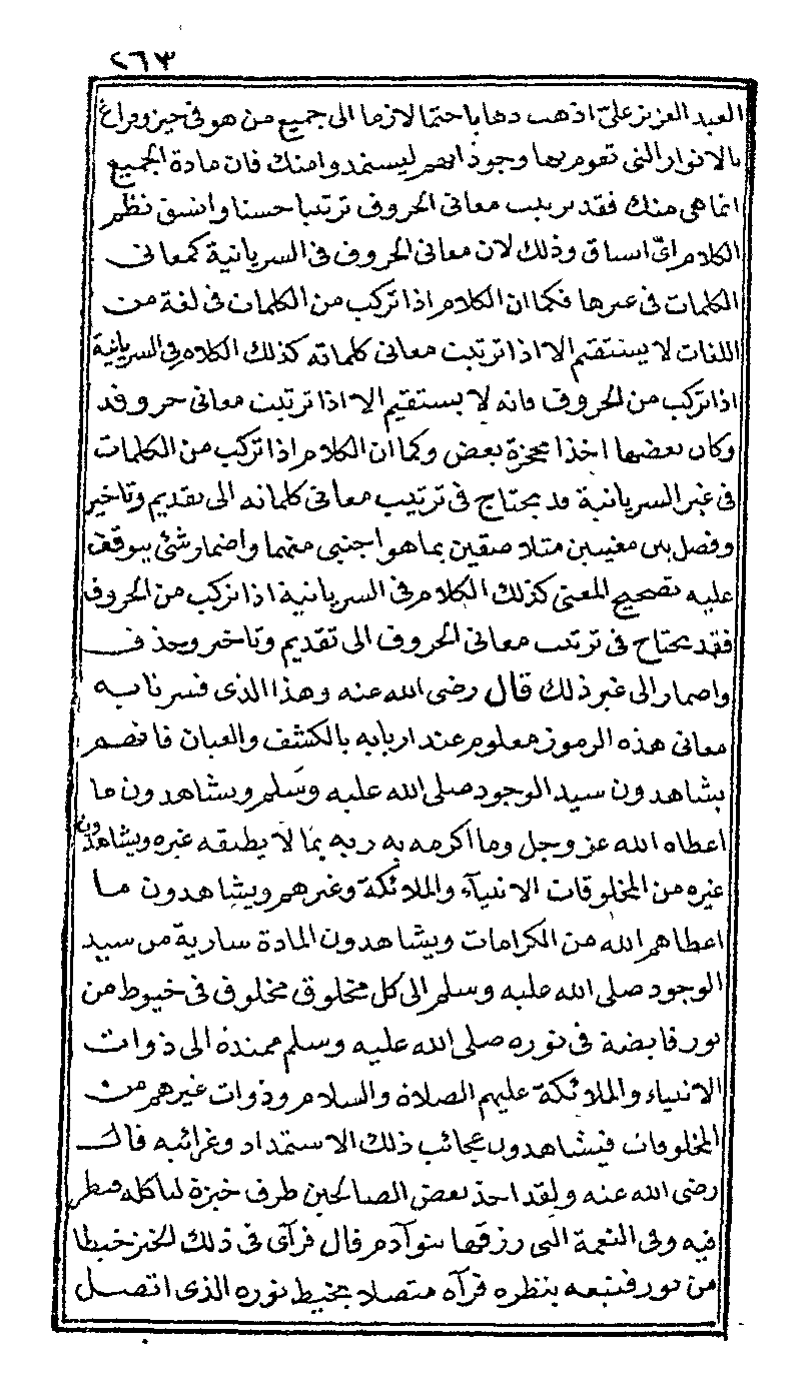 ٢٦٣
العبد العزيز علىّ اذهب ذهابا حتما لازما الى جميع من هو فى حيز وفراغ
بالانوار التى تقوم بها وجوداتهم ليستمدوا منك فان مادة الجميع
انما هى منك فقد ترتبت معانى الحروف ترتبا حسنا واتسق نظم
الكلام اىّ اتساق وذلك لان معانى الحروف فى السريانية كمعانى
الكلمات فى غيرها فكما ان الكلام اذا تركب من الكلمات فى لغة من
اللغات لا يستقيم الا اذا ترتبت معانى كلماته كذلك الكلام فى السريانية
اذا تركب من الحروف فانه لا يستقيم الا اذا ترتبت معانى حروفه
وكان بعضها اخذا بحجزة بعض وكما ان الكلام اذا تركب من الكلمات
فى غير السريانية قد يحتاج فى ترتيب معانى كلماته الى تقديم وتاخير
وفصل بين معنيين متلاصقين بما هو اجنبى منهما واضمار شئ يتوقف
عليه تصحيح المعنى كذلك الكلام فى السريانية اذا تركب من الحروف
فقد يحتاج فى ترتيب معانى الحروف الى تقديم وتاخير وحذف
واضمار الى غير ذلك قال رضى الله عنه وهذا الذى فسرنا به
معانى هذه الرموز معلوم عند اربابه بالكشف والعيان فانهم
يشاهدون سيد الوجود صلى الله عليه وسلم ويشاهدون ما
اعطاه الله عز وجل وما اكرمه به ربه بما لا يطيقه غيره ويشاهدون
غيره من المخلوقات الانبيآء والملائكة وغيرهم ويشاهدون ما
اعطاهم الله من الكرامات ويشاهدون المادة سارية من سيد
الوجود صلى الله عليه وسلم الى كل مخلوق مخلوق فى خيوط من
نور قابضة فى نوره صلى الله عليه وسلم ممتدة الى ذوات
الانبياء والملائكة عليهم الصلاة والسلام وذوات غيرهم من
المخلوقات فيشاهدون عجائب ذلك الاستمداد وغرائبه قال
رضى الله عنه ولقد اخذ بعض الصالحين طرف خبزة لياكله فنظر
فيه وفى النعمة التى رزقها بنو آدم قال فرآى فى ذلك الخبز خيطا
من نور فتبعه بنظره فرآه متصلا بخيط نوره الذى اتصل